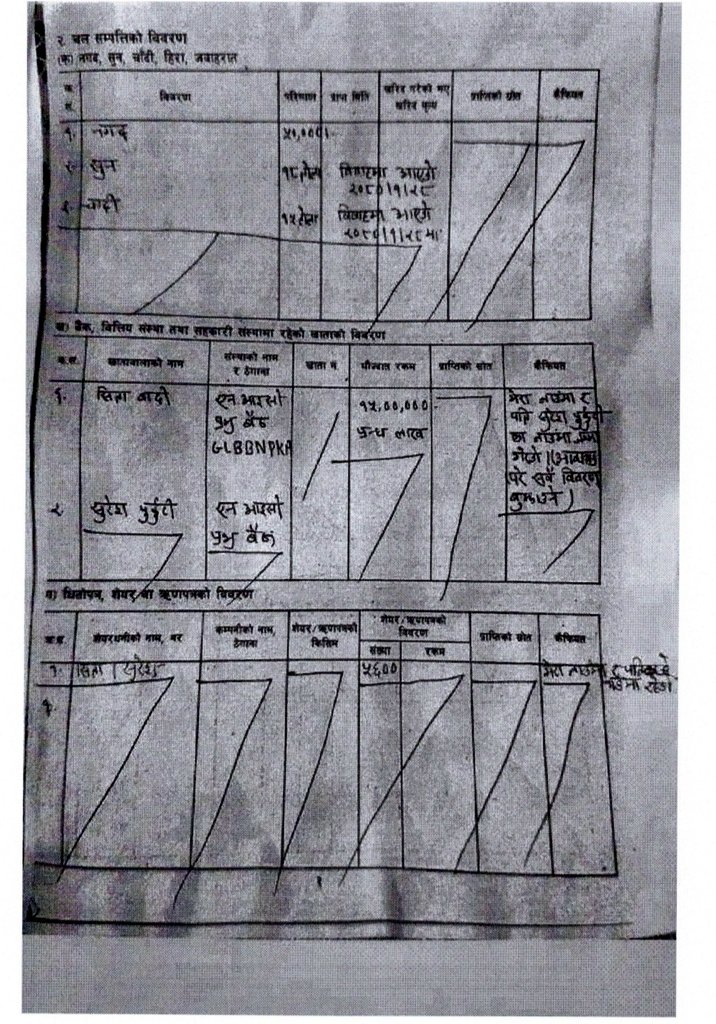 २. चल सम्पत्तिको विवरण
(क) नगद, सुन, चाँदी, हिरा, जवाहरात
क्र. स. विवरण परिमाण प्राप्त मिति खरिद गरेको भए खरिद मूल्य प्राप्तिको स्रोत कैफियत
१. नगद ५०,०००।-
२. सुन १८ तोला विवाहमा आएको
२०८०।१।२८
३. चादी १५ तोला विवाहमा आएको
२०८०।१।२८ मा
ख) बैंक, वित्तिय संस्था तथा सहकारी संस्थामा रहेको खाताको विवरण
क्र.स. खातावालाको नाम संस्थाको नाम र ठेगाना खाता नं मौज्दात रकम प्राप्तिको स्रोत कैफियत
१. सिता बादी एन आइसी १५,००,००० मेरा नाउँमा र
प्रभु बैंक पन्ध्र लाख पति सुरेश
GLBBNPKA का नाउँमा
विवरण
२. सुरेश एन आइसी बुझाउने)
प्रभु बैंक
ग) धितोपत्र, शेयर वा ऋणपत्रको विवरण
क्र.स. शेयरधनीको नाम, थर कम्पनीको नाम, ठेगाना शेयर/ऋणपत्रको किसिम शेयर/ऋणपत्रको विवरण प्राप्तिको स्रोत कैफियत
संख्या रकम
१. सिता / सुरेश ५६०० मेरा नाउँमा र पतिका
नाउँमा रहेको